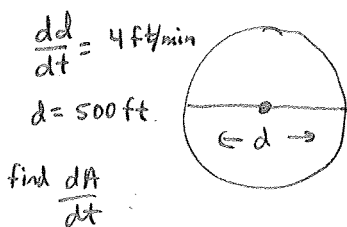 dd/dt = 4 ft/min
d = 500 ft.
← d →
find dA/dt.